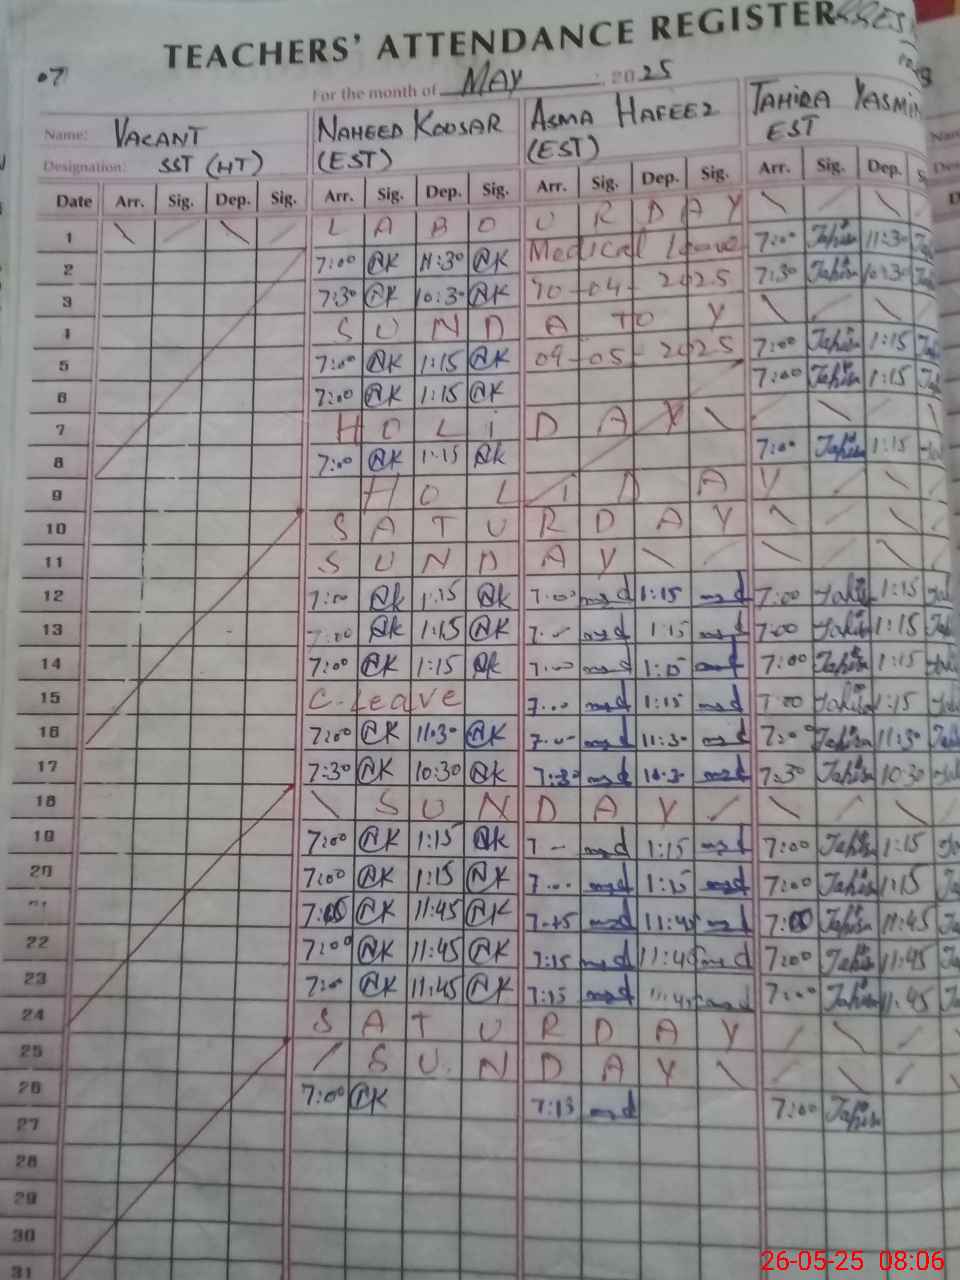 TEACHERS' ATTENDANCE REGISTER
07
For the month of MAY 2025
Name: VACANT NAHEED KOUSAR ASMA HAFEEZ TAHIRA YASMIN
Designation: SST (HT) (EST) (EST) EST
Date Arr. Sig. Dep. Sig. Arr. Sig. Dep. Sig. Arr. Sig. Dep. Sig. Arr. Sig. Dep.
1 L A B O U R D A Y
2 7:00 @K 11:30 @K Medical leave 7:00 Tahira 11:30
3 7:30 @K 10:30 @K 30-04-2025 7:30 Tahira 10:30
4 S U N D A TO Y
5 7:00 @K 1:15 @K 09-05-2025 7:00 Tahira 1:15
6 7:00 @K 1:15 @K 7:00 Tahira 1:15
7 H O L I D A Y
8 7:00 @K 1:15 @K 7:00 Tahira 1:15
9 H O L I D A Y
10 S A T U R D A Y
11 S U N D A Y
12 7:00 @K 1:15 @K 7:00 1:15 7:00 Tahira 1:15
13 7:00 @K 1:15 @K 1:15 7:00 Tahira 1:15
14 7:00 @K 1:15 @K 7:00 1:15 7:00 Tahira 1:15
15 C-Leave 1:15 7:00 Tahira 1:15
16 7:00 @K 11:30 @K 11:30 7:00 Tahira 11:30
17 7:30 @K 10:30 @K 7:30 10:30 7:30 Tahira 10:30
18 S U N D A Y
19 7:00 @K 1:15 @K 1:15 7:00 Tahira 1:15
20 7:00 @K 1:15 @K 1:15 7:00 Tahira 1:15
7:00 @K 11:45 @K 11:45 7:00 Tahira 11:45
22 7:00 @K 11:45 @K 7:15 11:45 7:00 Tahira 11:45
23 7:00 @K 11:45 @K 7:15 11:45 7:00 Tahira 11:45
24 S A T U R D A Y
25 S U N D A Y
26 7:00 @K 7:13 7:00 Tahira
27
28
29
30
31
26-05-25 08:06